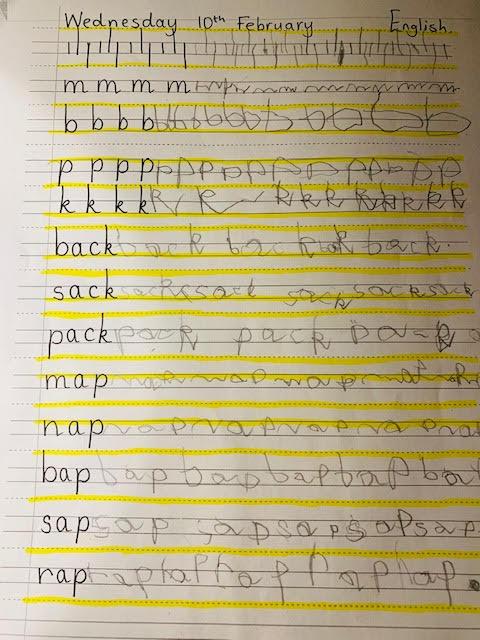 Wednesday 10th February English.
m m m m m
b b b b b b b b b b b b b
p p p p p p p p p p p p p p p
k k k k k k k k k k k k k
back back back back back.
sack sack sack sack sack sack
pack pack pack pack
map map map map
nap nap nap nap nap
bap bap bap bap bap
sap sap sap sap sap sap
rap rap rap rap rap rap